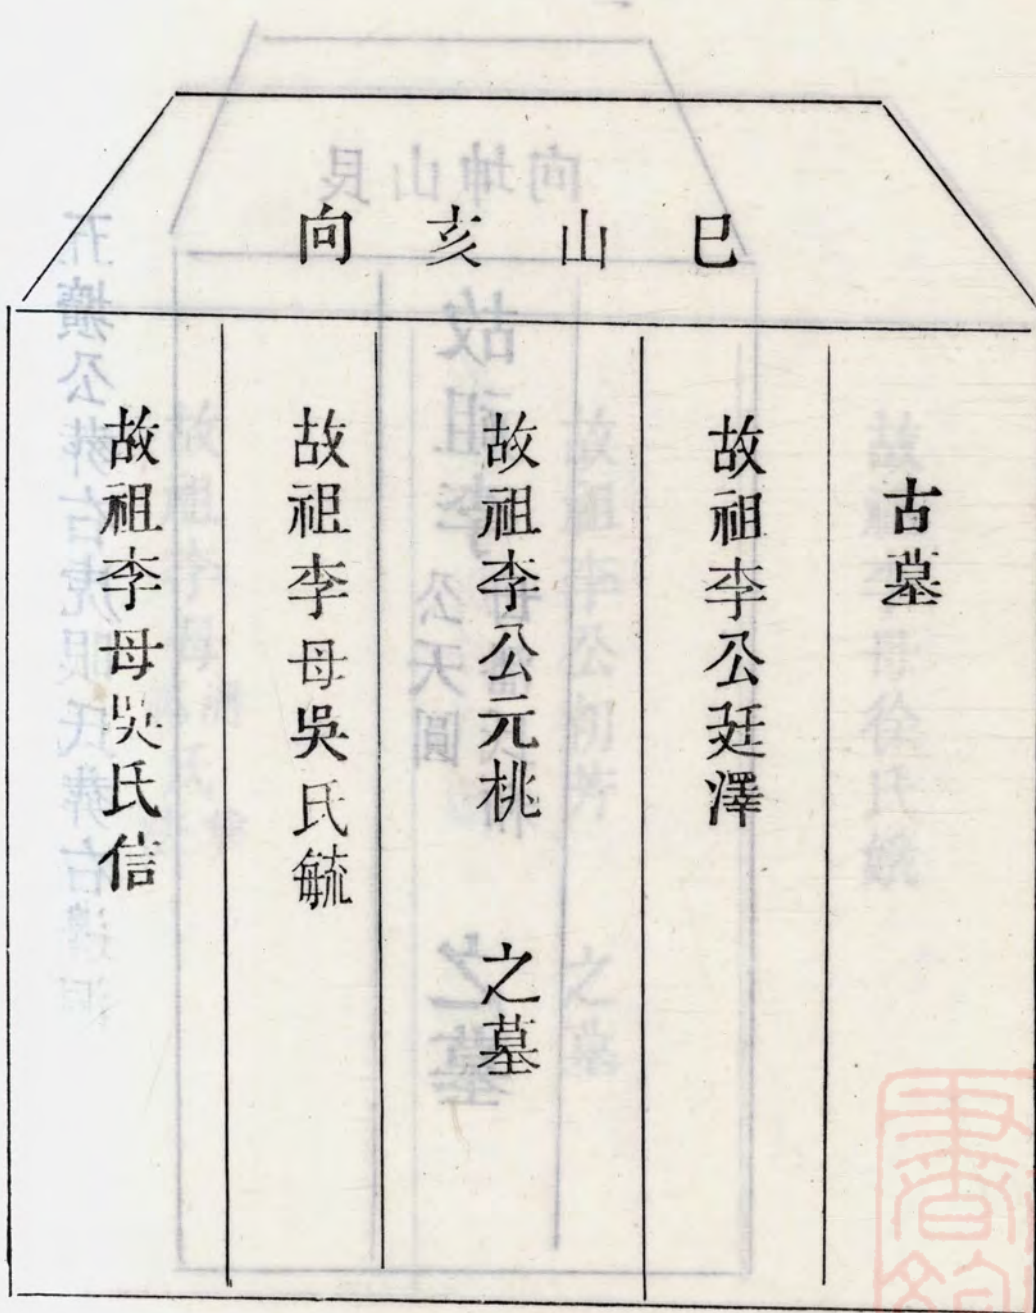 巳山亥向
古墓
故祖李公廷澤
故祖李公元桃之墓
故祖李母吳氏毓
故祖李母吳氏信